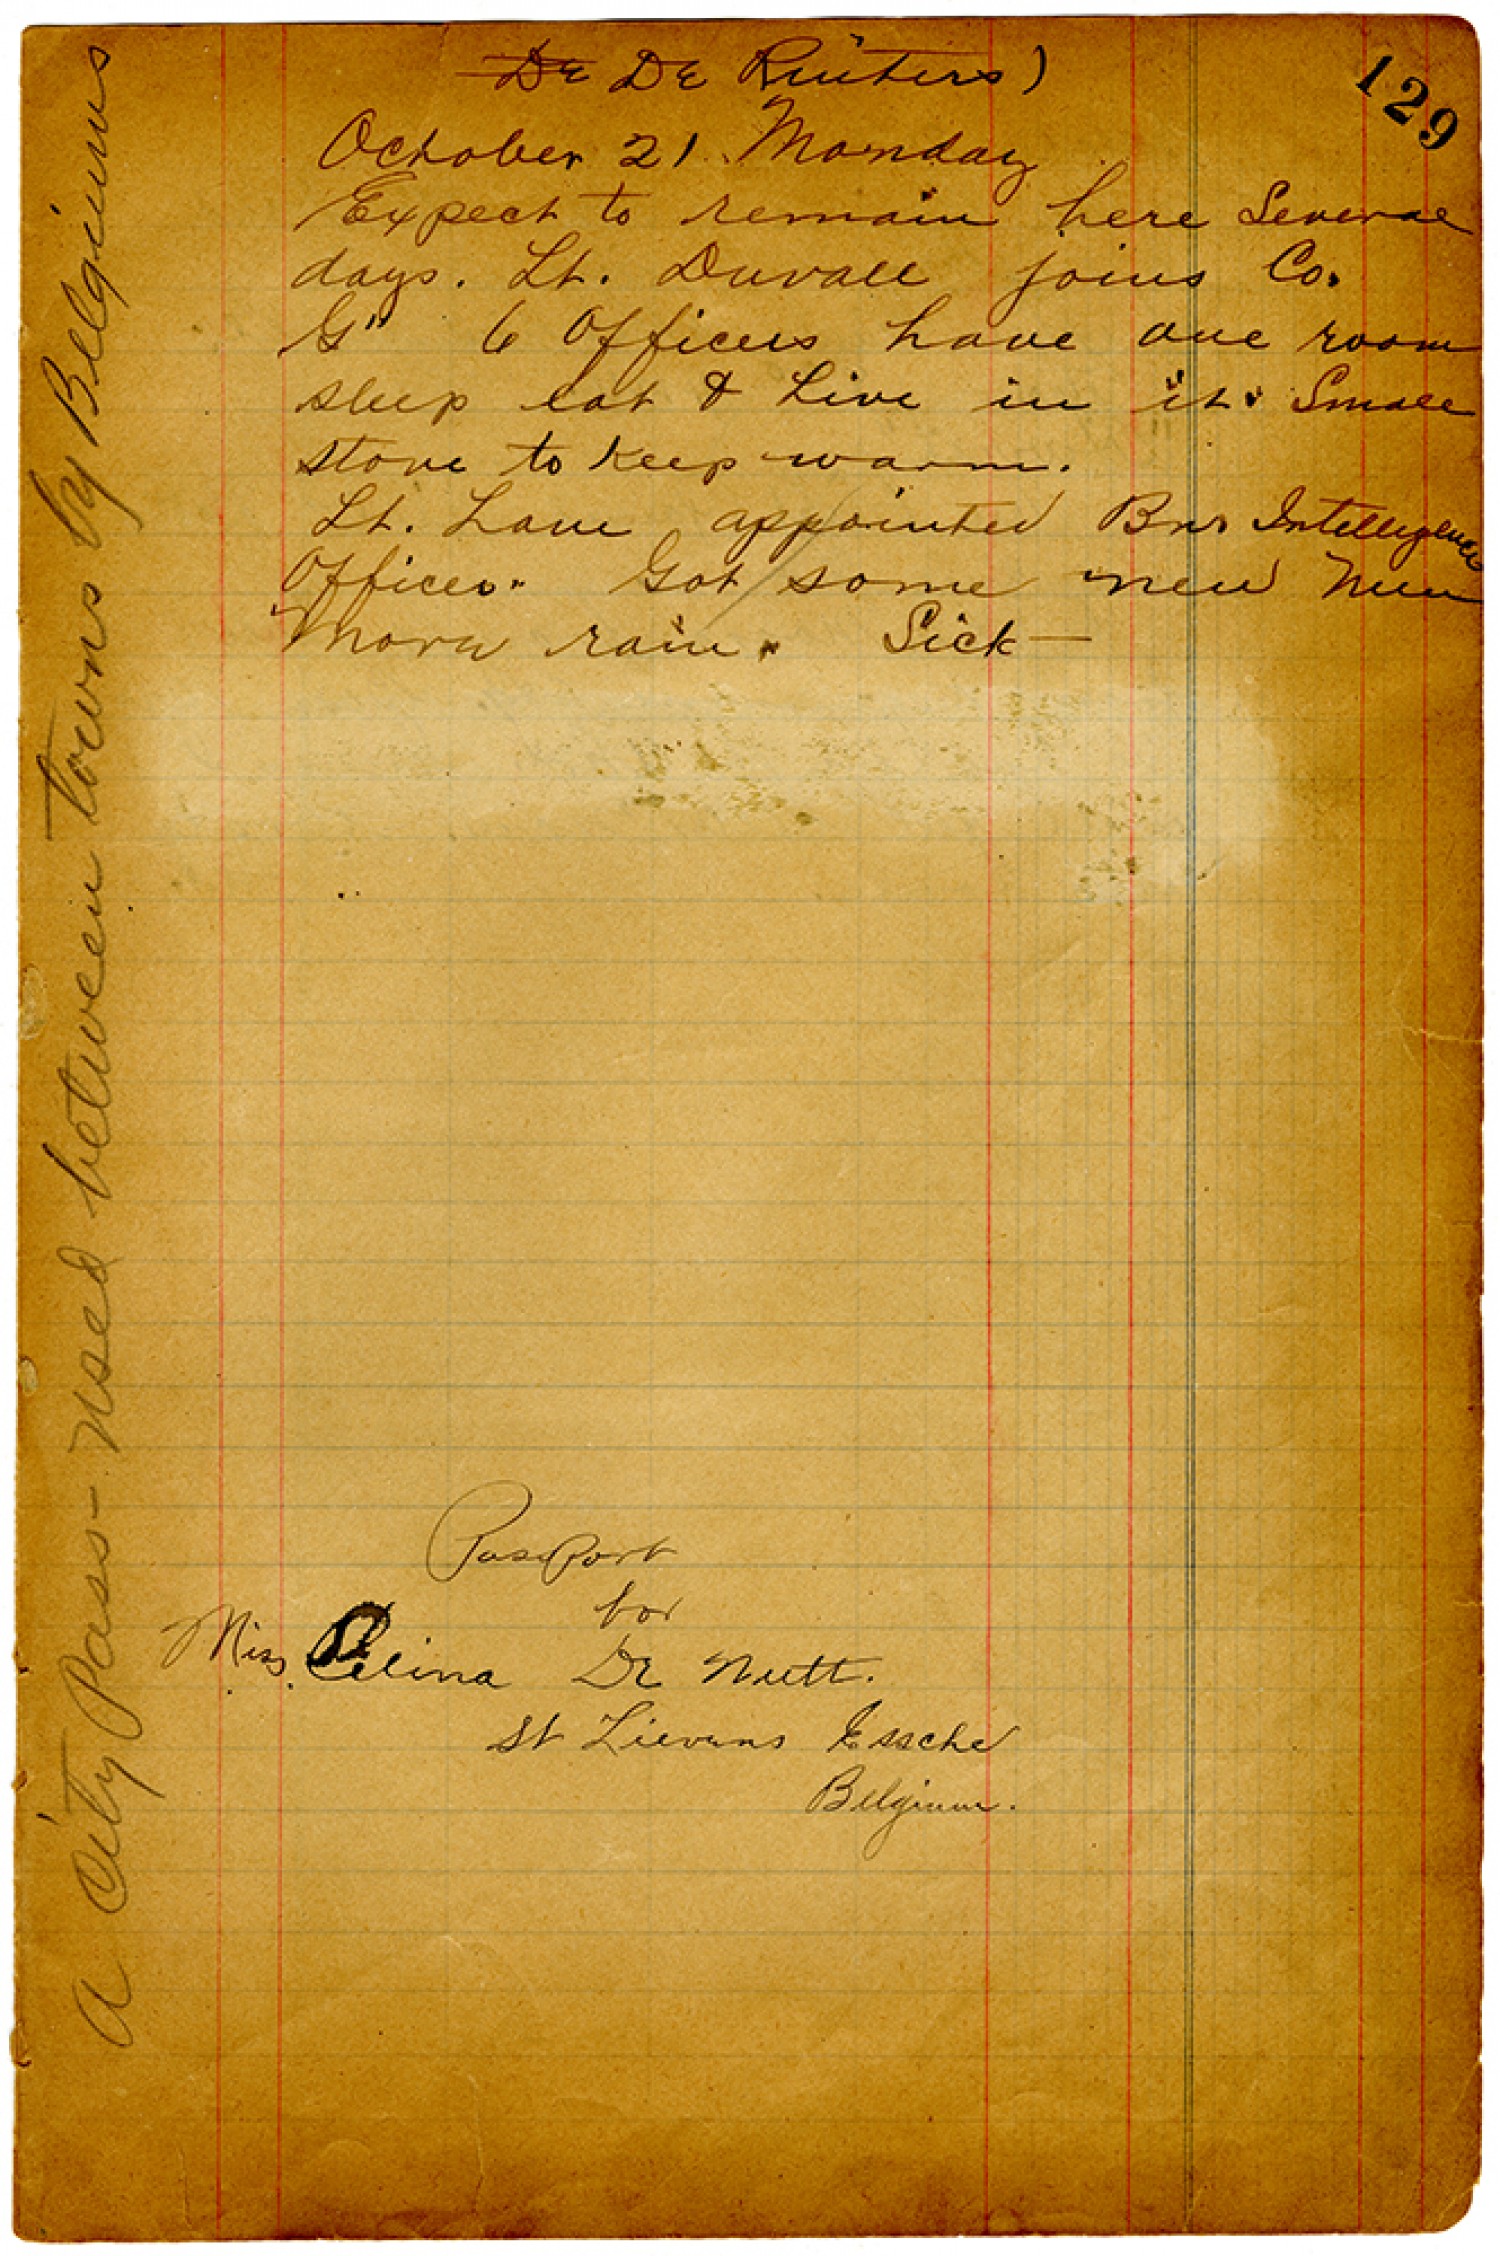 129
De De Ruiters)
October 21 Monday
Expect to remain here Several
days. Lt. Duvall joins Co.
G" 6 Officers have one room
sleep eat & Live in it. Small
stove to keep warm.
Lt. Lane appointed Bn. Intelligence
Officer. Got some new men
More rain. Sick—
PassPort
for
Miss. Celina De Nutt.
St Lievens Essche
Belgium.
a City Pass - used between towns by Belgiums